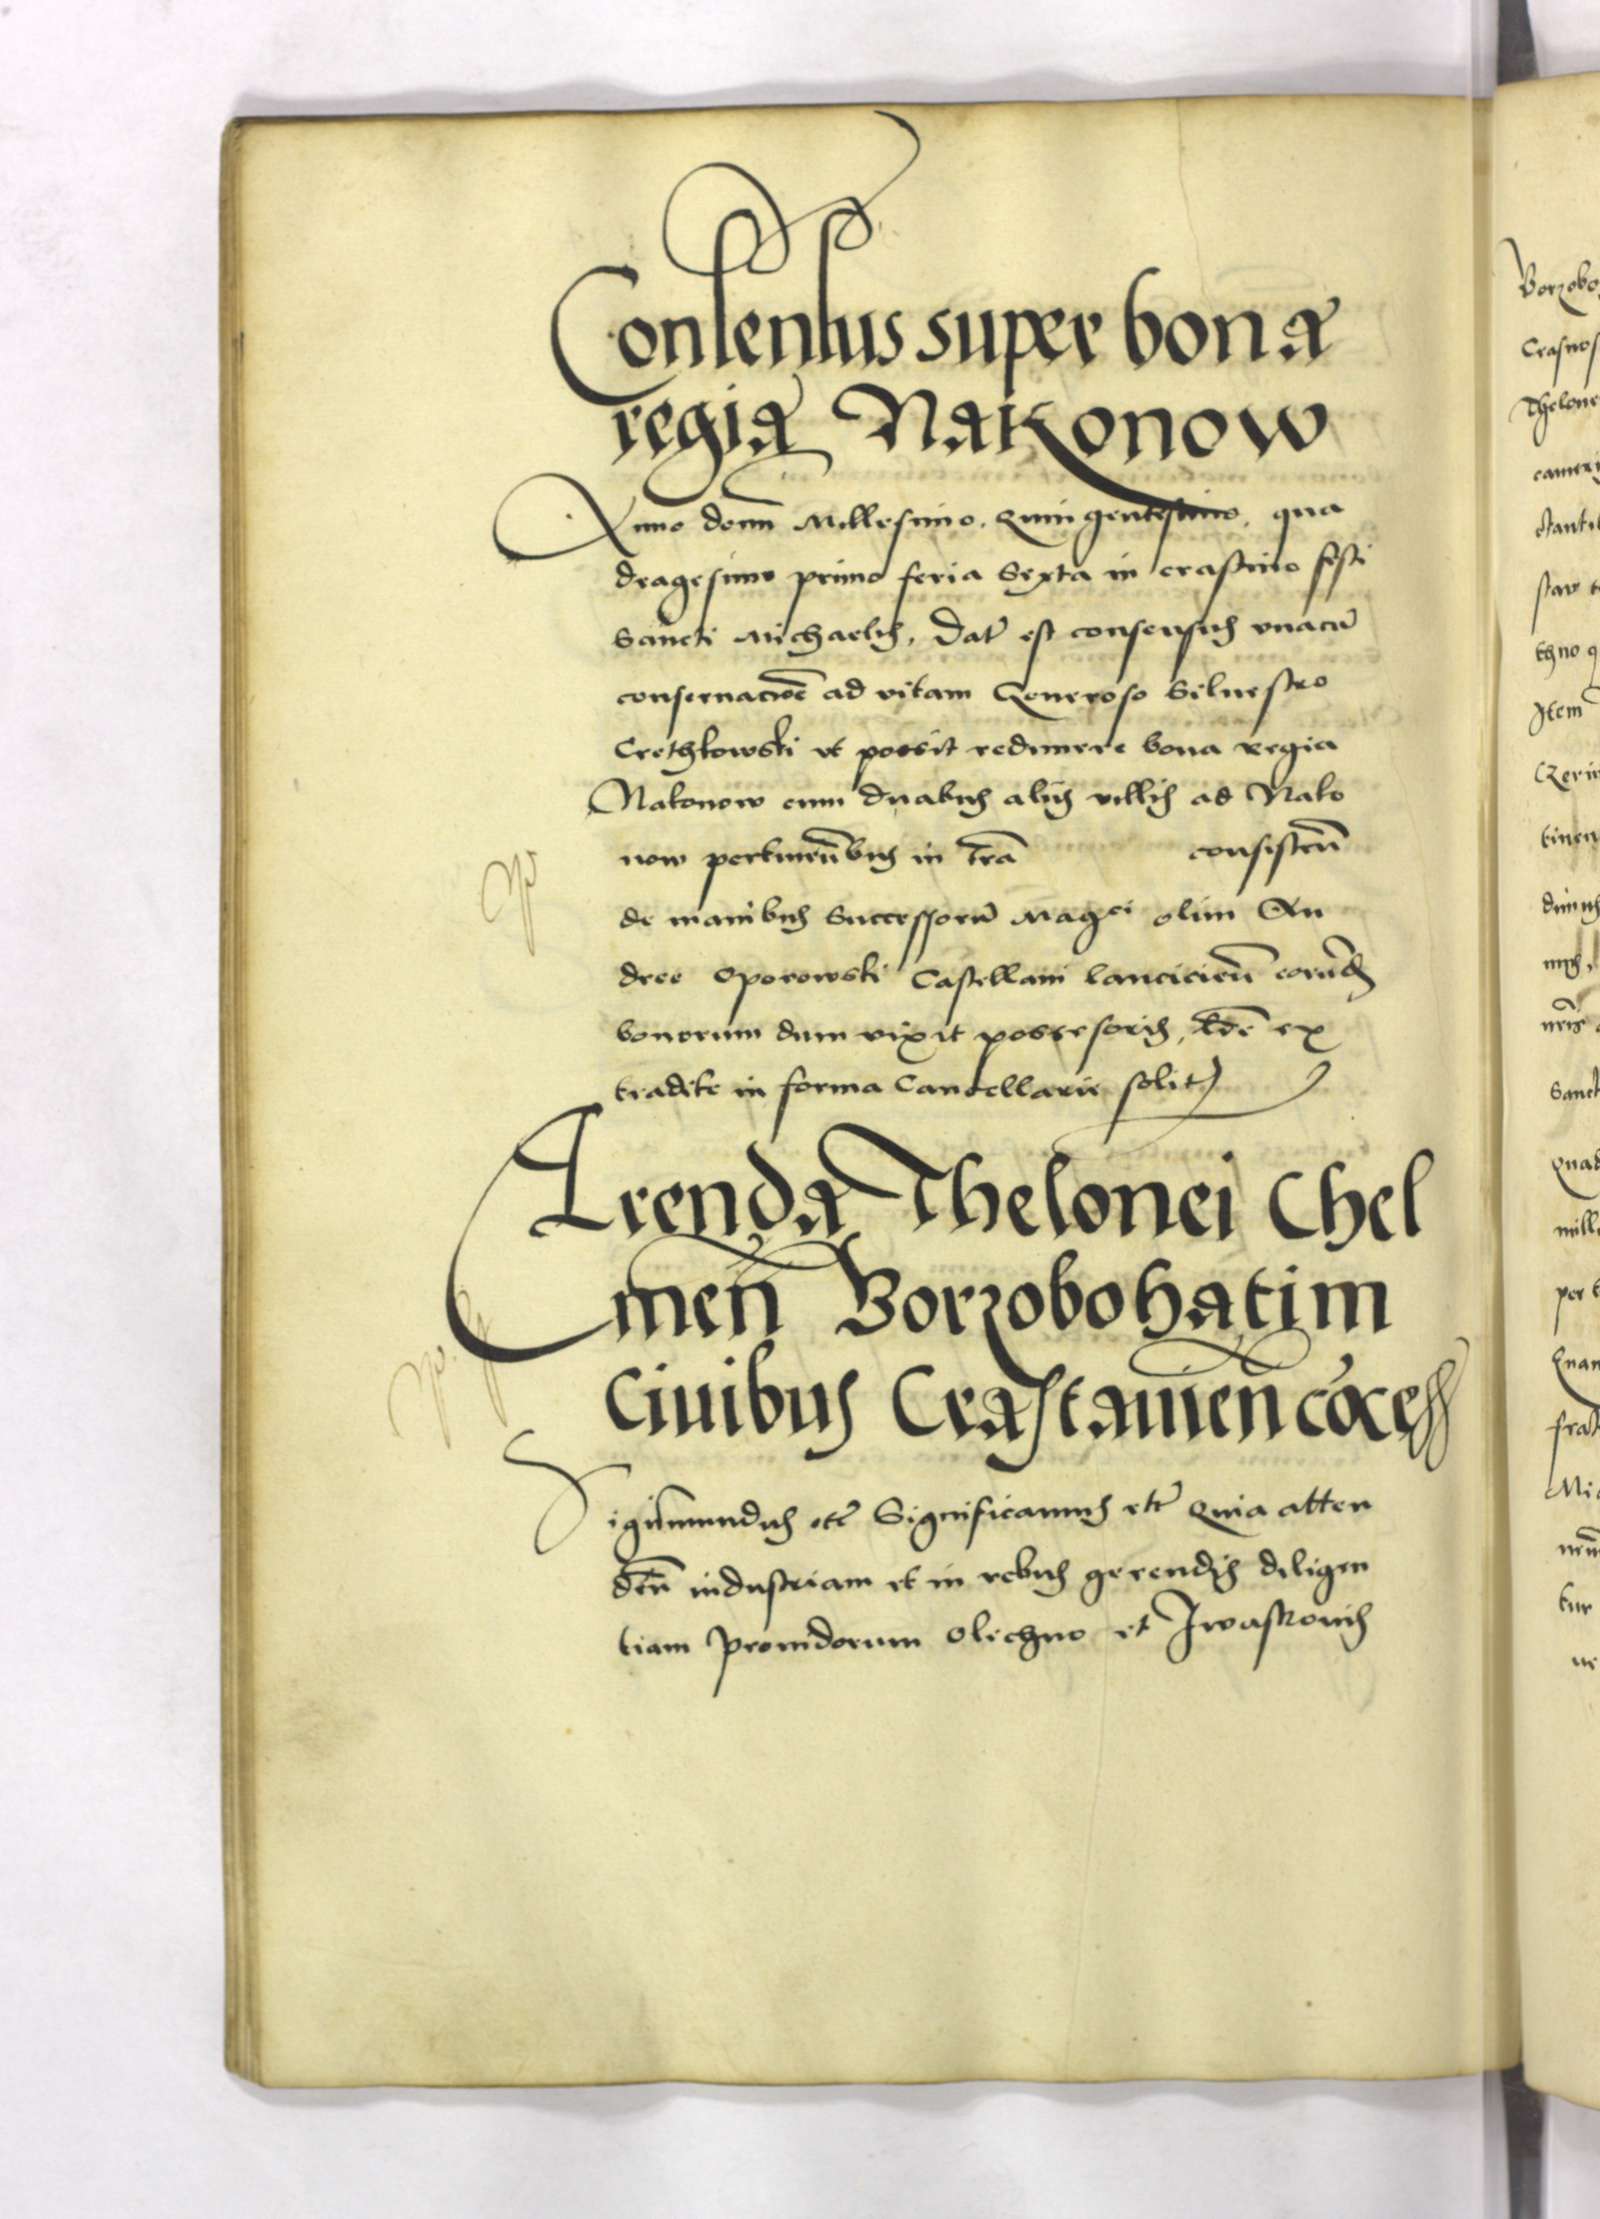 Consensus super bona
regia Nakonow
Anno domı̄ Millesimo, Quingentesimo, qua
dragesimo primo feria Sexta in crastino festi
Sancti Michaelis, Dat̄ est consensus vnacū
conseruacioē ad vitam Generoso Siluestro
Crethkowski vt possit redimere bona regia
Nakonow cum duabus aliis villis ad Nako
now pertineñbus in trā consisteñ
de manibus Successorū Magci olim An
dree Oporowski Castellani lancicieñ eorūdē
bonorum dum vixit possessoris, lr̄e ex
tradite in forma Cancellarie solita
Arenda Thelonei Chel
meñ Borzobohatim
Ciuibus Crastauieñ cōcess
Sigismundus etc̄ Significamus etc̄ Quia atten
deñ industriam et in rebus gerendis diligen
tiam prouidorum Olechno et Iwasskonis
Borzobo
Crasnos
Thelone
Item